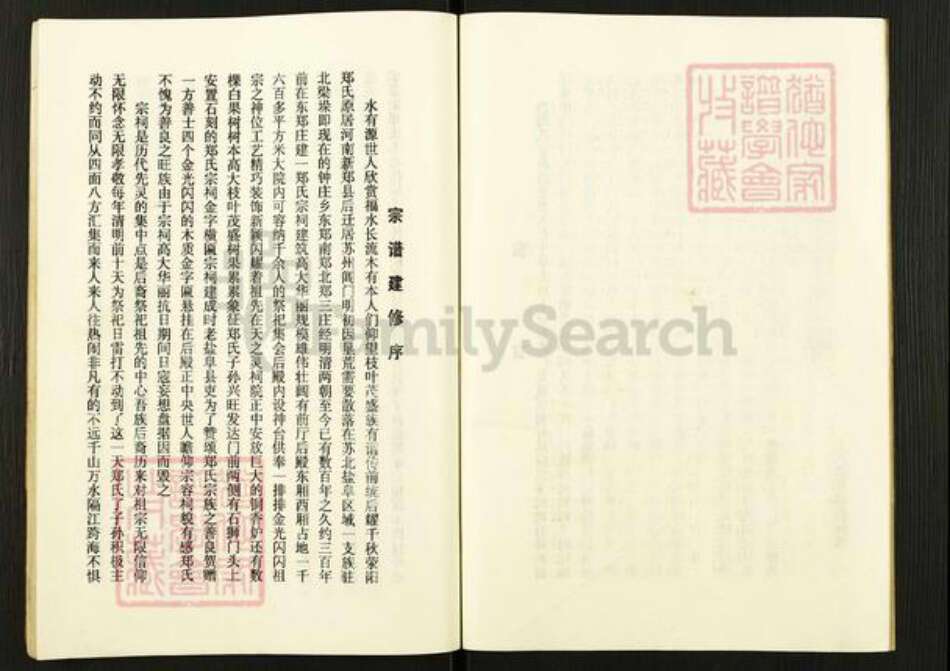 宗谱建修序
水有源世人欣赏福水长流木有本人们仰望枝叶茂盛族有谱传前统后耀千秋荥阳
郑氏原居河南新郑县后迁居苏州阊门明初因垦荒需要散落在苏北盐阜区域一支族驻
北梁垛即现在的钟庄乡东郑南郑北郑三庄经明清两朝至今已有数百年之久约三百年
前在东郑庄建一郑氏宗祠建筑高大华丽规模雄伟壮阔有前厅后殿东厢西厢占地一千
六百多平方米大院内可容纳千余人的祭祀集会后殿内设神台供奉一排排金光闪闪祖
宗之神位工艺精巧装饰新颖闪耀着祖先在天之灵祠院正中安放巨大的铜香炉还有数
棵白果树树本高大枝叶茂盛树果累累象征郑氏子孙兴旺发达门前两侧有石狮门头上
安置石刻的郑氏宗祠金字横匾宗祠建成时老盐阜县吏为了赞颂郑氏宗族之善良贺赠
一方善士四个金光闪闪的木质金字匾悬挂在后殿正中央世人瞻仰宗容祠貌有感郑氏
不愧为善良之旺族由于宗祠高大华丽抗日期间日寇妄想盘据因而毁之
宗祠是历代先灵的集中点是后裔祭祀祖先的中心吾族后裔历来对祖宗无限信仰
无限怀念无限孝敬每年清明前十天为祭祀日雷打不动到了这一天郑氏子孙积极主
动不约而同从四面八方汇集而来人来人往热闹非凡有的不远千山万水隔江跨海不惧
FamilySearch